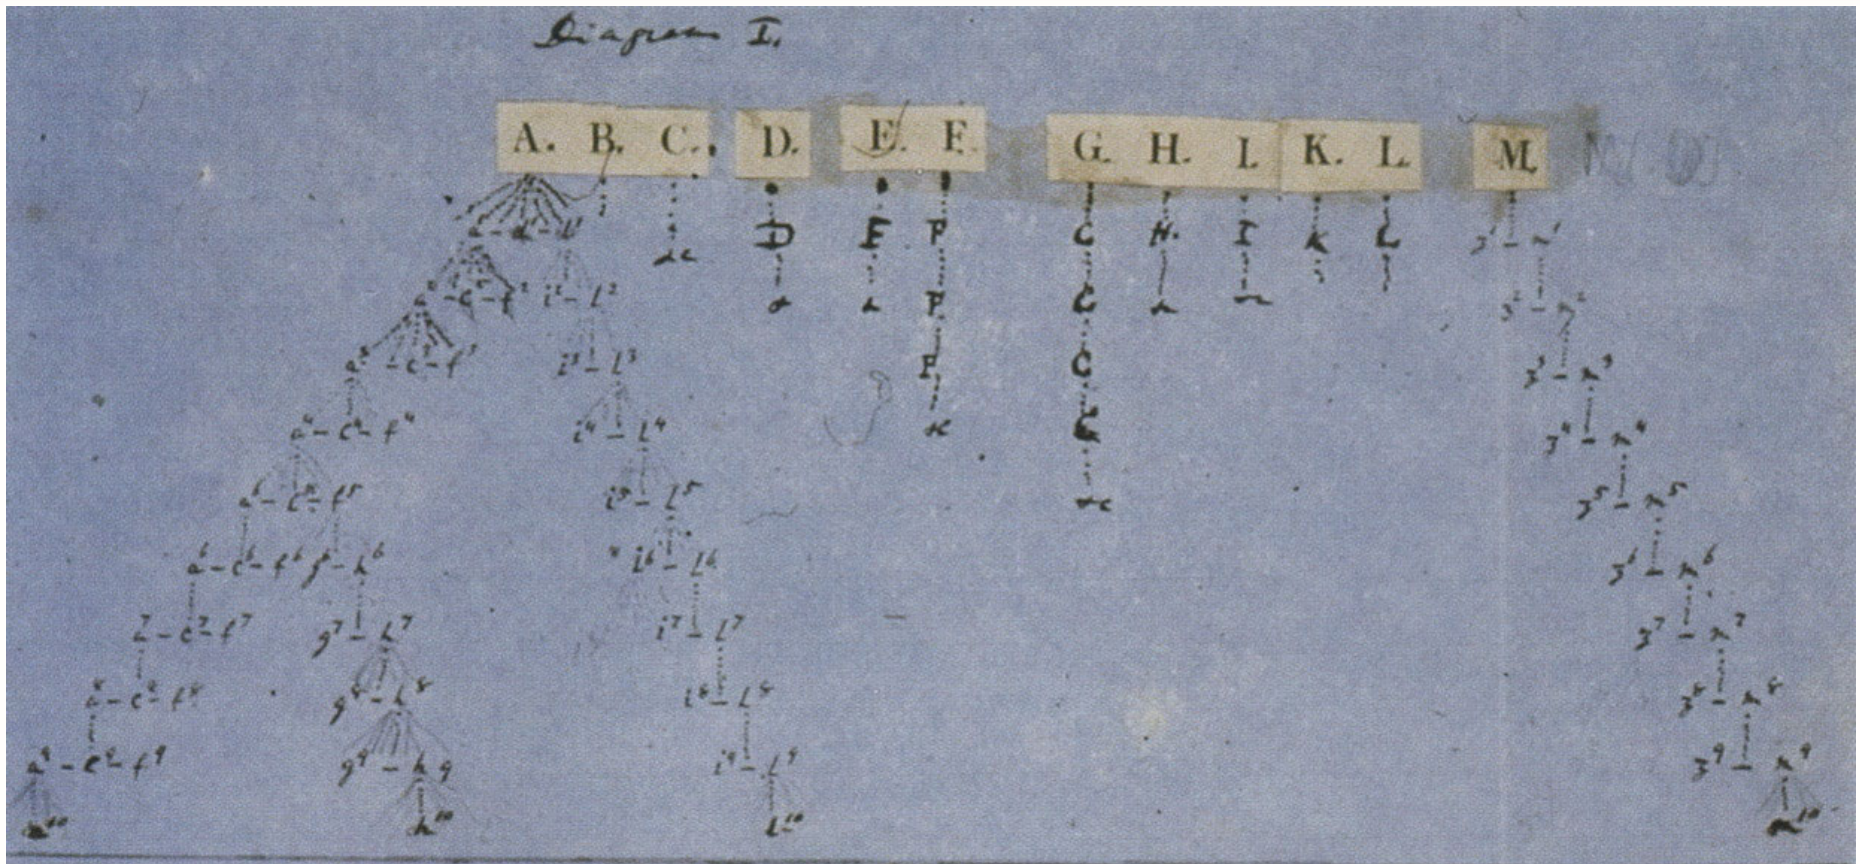 Diagram I.
A. B. C. D. E. F. G. H. I. K. L. M.
D E F G H. I K L z¹ n¹
a² c² f² i² l² F G z² n²
a³ c³ f³ i³ l³ F G z³ n³
a⁴ - c⁴ - f⁴ i⁴ - l⁴ G z⁴ - n⁴
a⁵ - c⁵ - f⁵ i⁵ - l⁵ z⁵ - n⁵
a⁶ - c⁶ - f⁶ g⁶ - h⁶ i⁶ - l⁶ z⁶ - n⁶
c⁷ - f⁷ g⁷ - h⁷ i⁷ - l⁷ z⁷ - n⁷
a⁸ - c⁸ - f⁸ g⁸ - h⁸ i⁸ - l⁸ z⁸ - n⁸
a⁹ - c⁹ - f⁹ g⁹ - h⁹ i⁹ - l⁹ z⁹ - n⁹
a¹⁰ h¹⁰ l¹⁰ n¹⁰